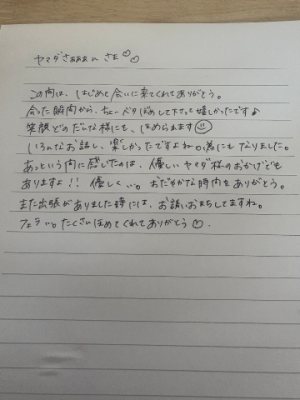 ヤマダさぁぁぁんさま
この間は、はじめて会いに来てくれてありがとう。
会った瞬間から、ちょーベタぼめして下さって嬉しかったですよ
笑顔どの にも、ほめられます
いろんなお話し、楽しかったですよね。 にもなりました。
あっという間に感じたのは、優しいヤマダ様のおかげでも
ありますよ!! 優しく 。おだやかな時間をありがとう。
また出張がありました時には、お誘いお待ちしてますね。
フェラ 。たくさんほめてくれてありがとう